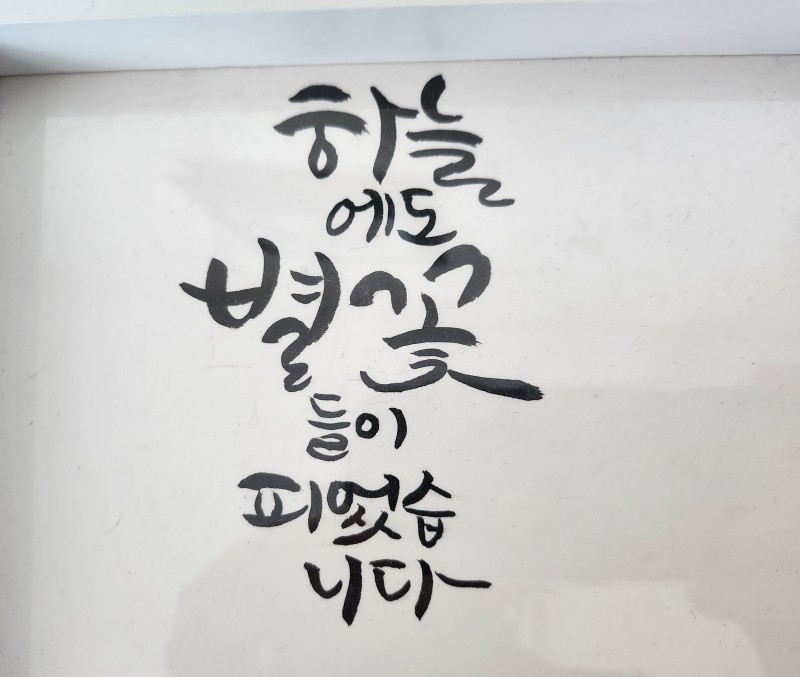 하늘
에도
별꽃
들이
피었습
니다